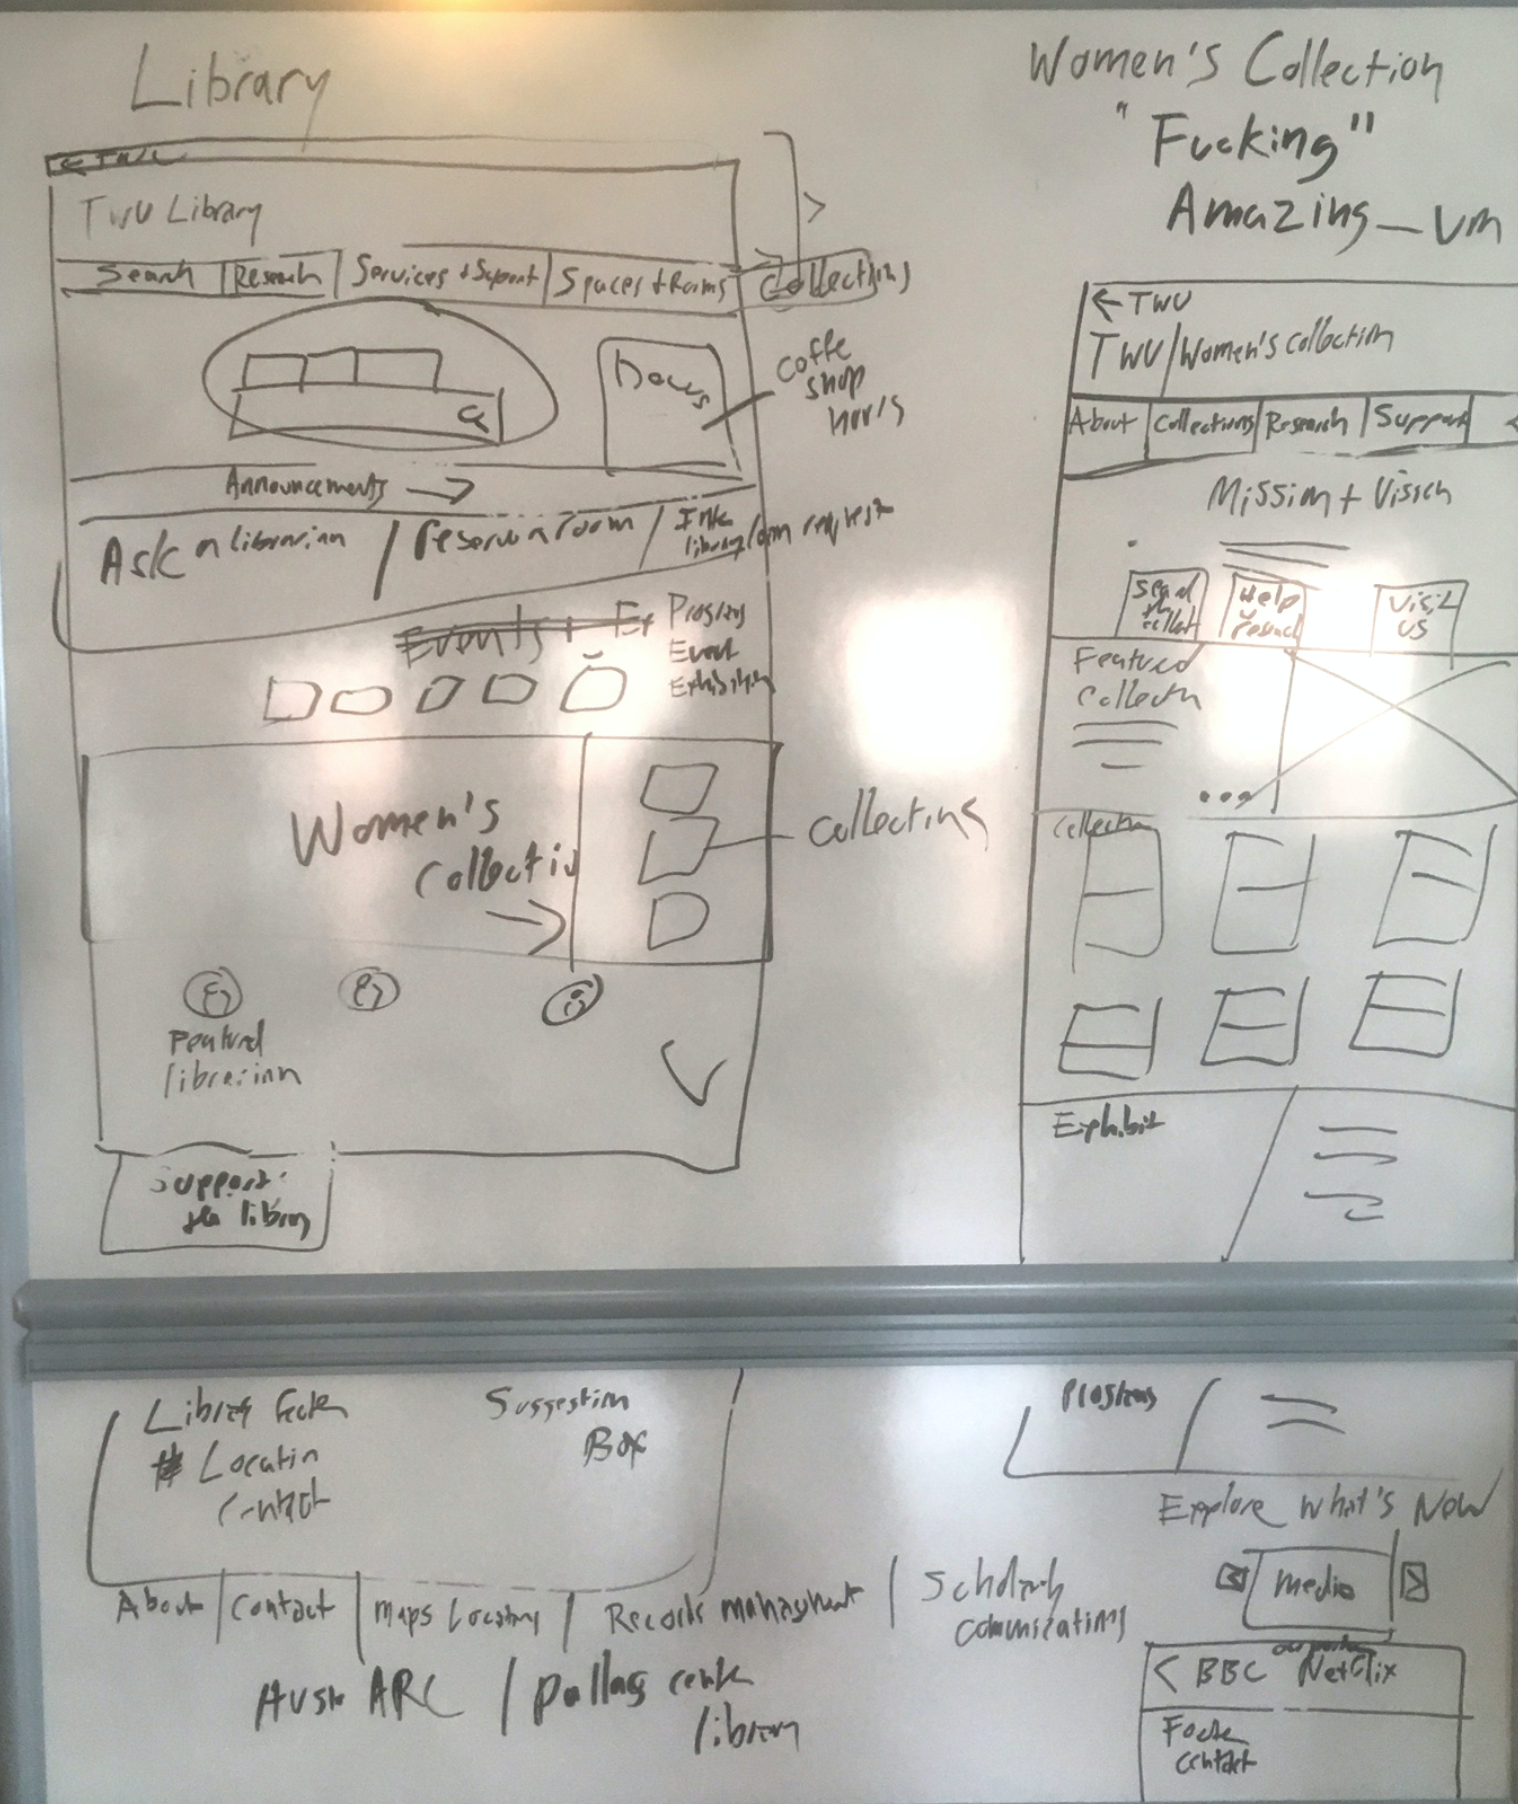 Library
← TWU
TWU Library
Search | Research | Services + Support | Spaces + Rooms | Collections
Hours
coffe
shop
hours
Announcements →
Ask a librarian / reserve a room / Inter
library loan request
Events + Ex
Programs
Event
Exhibition
Women's
Collectio
→
collections
Featured
librarian
Support
the library
Library Footer
Location
contact
Suggestion
Box
About | Contact | Maps Location | Records management | Scholarly
communications
ARC / Dallas center
library
Women's Collection
"Fucking"
Amazing_um
← TWU
TWU/Women's collection
About | Collections | Research | Support
Mission + Vision
Help
research
Visit
us
Featured
Collectn
...
Collection
Exhibit
Programs
Explore What's New
media
our partners
< BBC Netflix
Footer
contact